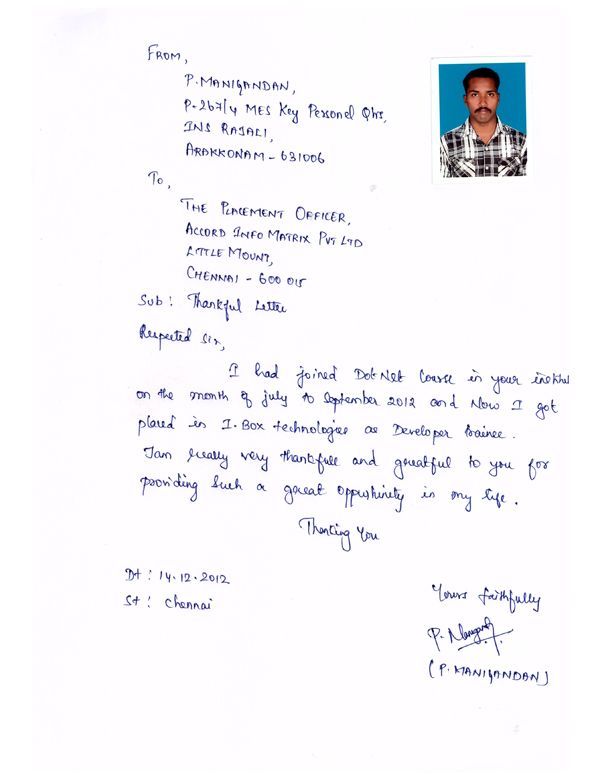 From,
P. MANIGANDAN,
P-267/4 MES Key Personel Qtrs,
INS RAJALI,
ARAKKONAM - 631006
To,
THE PLACEMENT OFFICER,
ACCORD INFO MATRIX PVT LTD
LITTLE MOUNT,
CHENNAI - 600 015
Sub : Thankful Letter
Respected Sir,
I had joined Dot Net Course in your
on the month of july to September 2012 and Now I got
placed in I-Box technologies as Developer trainee.
I am really very thankfull and greatful to you for
providing such a great oppurtunity in my life.
Thanking You
Dt : 14.12.2012
St : Chennai
Yours faithfully
(P. MANIGANDAN)